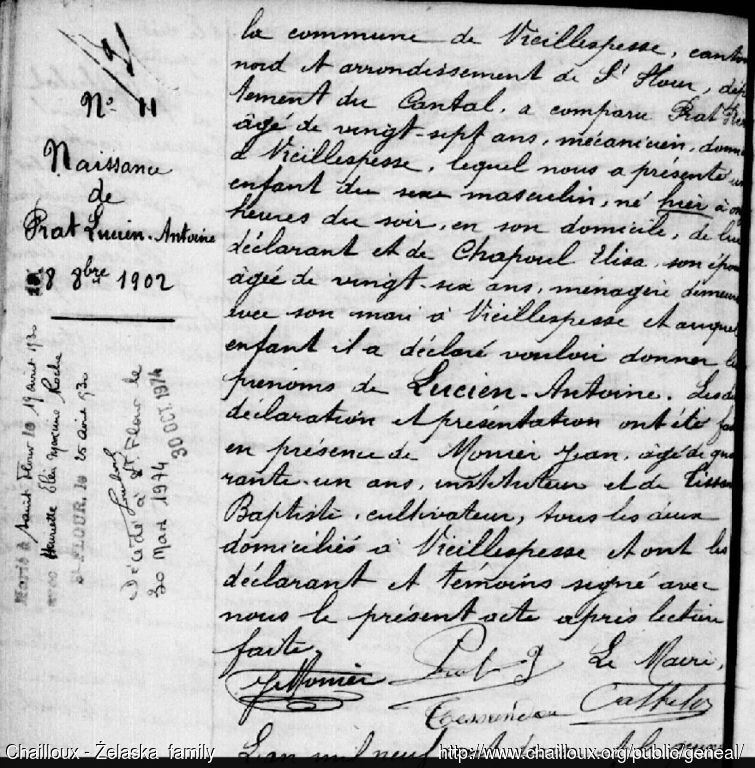 N° 11
Naissance
de
Prat Lucien-Antoine
8 8bre 1902
Marié à Saint Flour le 19 avril 1930
avec Henriette Roche
St FLOUR, le 25 avril 1930
Décédé à St Flour le
30 Mars 1974
30 OCT. 1974
la commune de Vieillespesse, canton
nord et arrondissement de St Flour, dép
tement du Cantal, a comparu Prat
âgé de vingt-sept ans, mécanicien, domi
à Vieillespesse, lequel nous a présenté un
enfant du sexe masculin, né hier à
heures du soir, en son domicile, de lui
déclarant et de Chapoul Elisa, son épou
âgée de vingt-six ans, ménagère demeu
avec son mari à Vieillespesse et auquel
enfant il a déclaré vouloir donner les
prénoms de Lucien-Antoine. Lesdi
déclaration et présentation ont été fai
en présence de Monier Jean, âgé de qua
rante-un ans, instituteur et de
Baptiste, cultivateur, tous les deux
domiciliés à Vieillespesse et ont les
déclarant et témoins signé avec
nous le présent acte après lecture
faite.
J Monier Prat Le Maire,
L'an mil neuf cent
Chailloux - Żelaska family
http://www.chailloux.org/public/geneal/